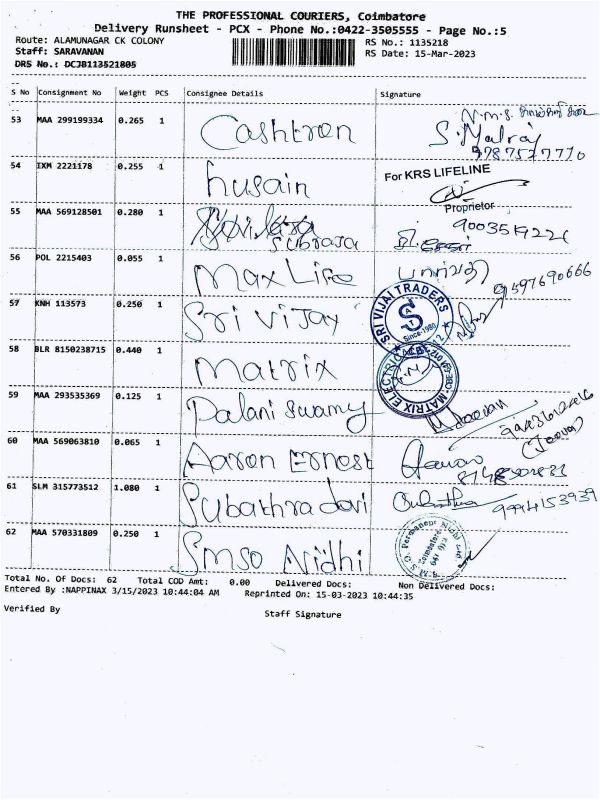 THE PROFESSIONAL COURIERS, Coimbatore
Delivery Runsheet - PCX - Phone No.:0422-3505555 - Page No.:5
Route: ALAMUNAGAR CK COLONY
RS No.: 1135218
Staff: SARAVANAN
RS Date: 15-Mar-2023
DRS No.: DCJB113521805
S No Consignment No Weight PCS Consignee Details Signature
53 MAA 299199334 0.265 1 Cashtron
S. Malraj
9787577770
54 IXM 2221178 0.255 1 husain
For KRS LIFELINE
Proprietor
55 MAA 569128501 0.280 1 Subraja
9003519221
56 POL 2215403 0.055 1 Max Life
பார்வதி
9597690666
57 KNH 113573 0.250 1 Sri Vijay
SRI VIJAI TRADERS
SAT
Since-1980
58 BLR 8150238715 0.440 1 Matrix
MATRIX ELECTRICAL
59 MAA 293535369 0.125 1 Palani Swamy
M. Jeevan
(Jeeva)
60 MAA 569063810 0.065 1 Aaron Ernest
61 SLM 315773512 1.080 1 Subathra davi
9994153939
62 MAA 570331809 0.250 1 SMSO Nidhi
Permanent Nidhi Ltd
Coimbatore
Total No. Of Docs: 62 Total COD Amt: 0.00 Delivered Docs: Non Delivered Docs:
Entered By :NAPPINAX 3/15/2023 10:44:04 AM Reprinted On: 15-03-2023 10:44:35
Verified By Staff Signature